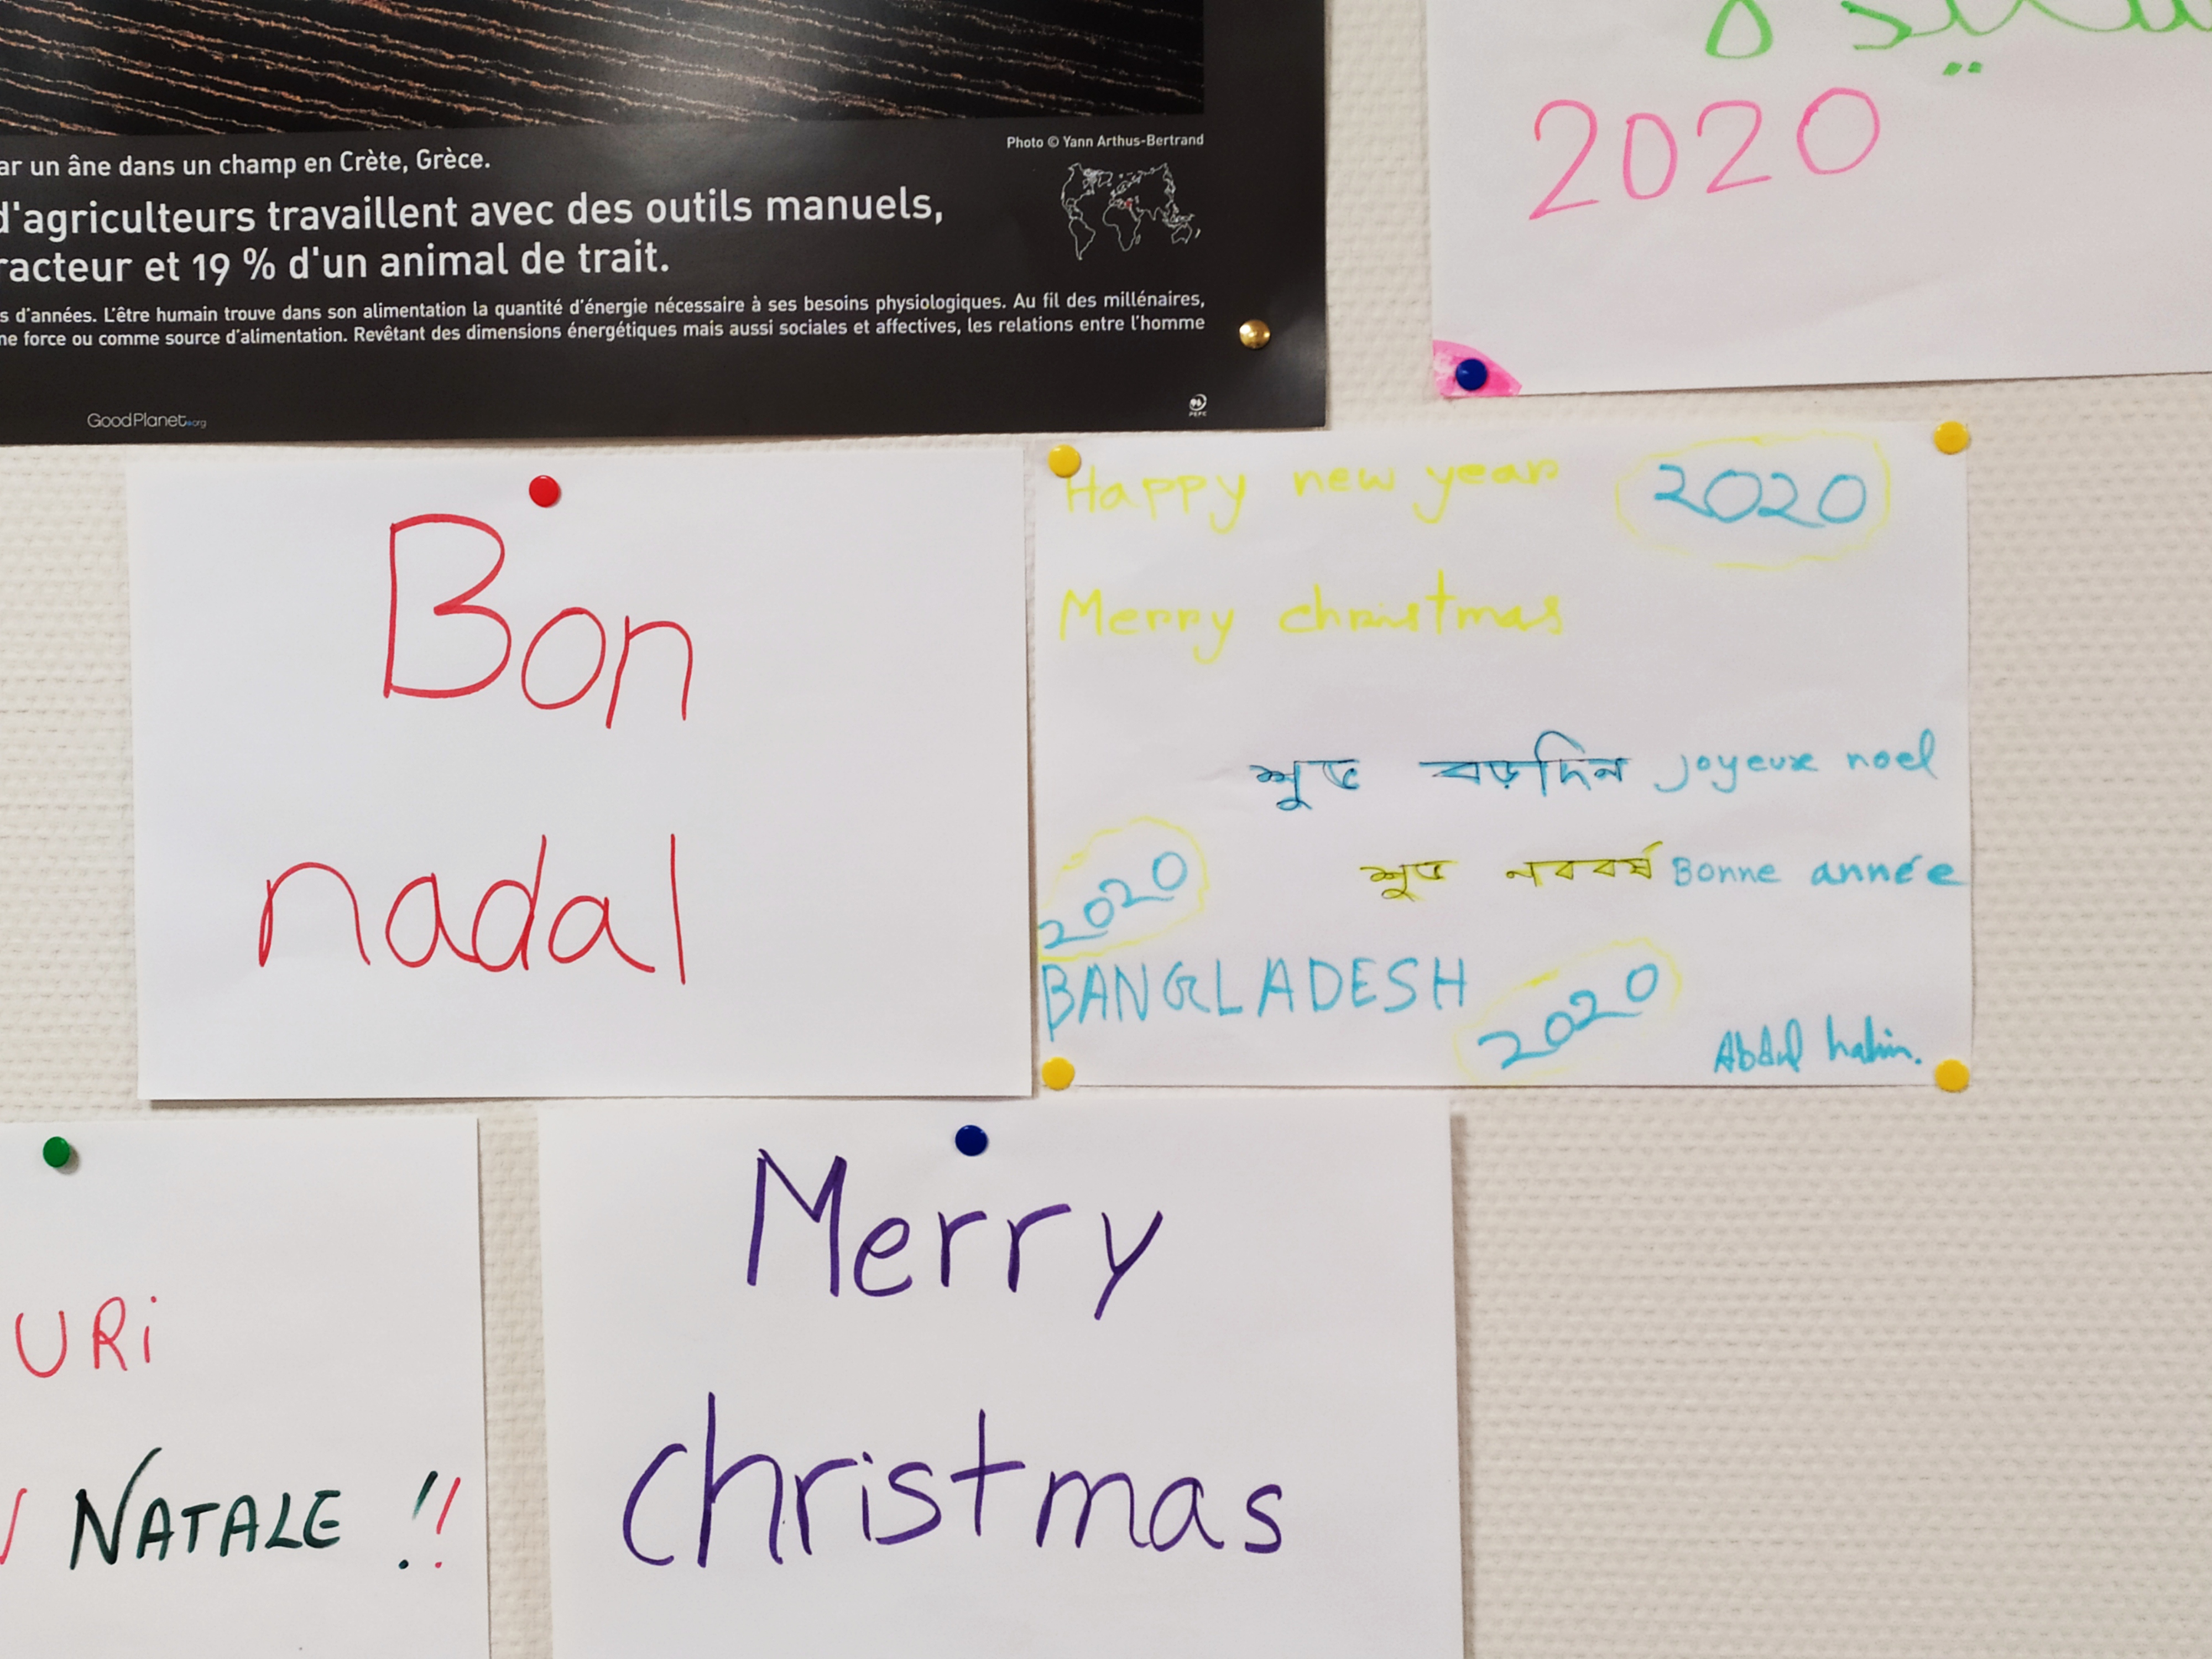 Photo © Yann Arthus-Bertrand
ar un âne dans un champ en Crète, Grèce.
d'agriculteurs travaillent avec des outils manuels,
racteur et 19 % d'un animal de trait.
s d'années. L'être humain trouve dans son alimentation la quantité d'énergie nécessaire à ses besoins physiologiques. Au fil des millénaires,
ne force ou comme source d'alimentation. Revêtant des dimensions énergétiques mais aussi sociales et affectives, les relations entre l'homme
GoodPlanet.org
PEFC
2020
Bon
nadal
Happy new year 2020
Merry christmas
শুভ বড়দিন joyeux noel
শুভ নববর্ষ Bonne année
2020
BANGLADESH 2020
Abdul halim.
URi
NATALE !!
Merry
christmas